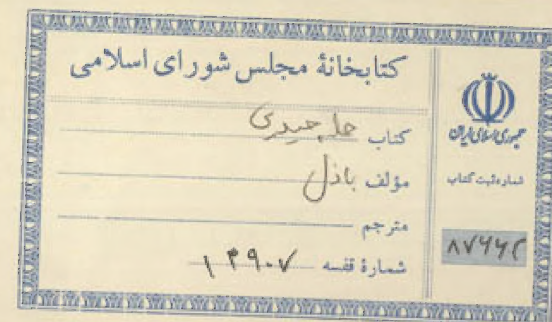 کتابخانهٔ مجلس شورای اسلامی
کتاب حملہ حیدری
مؤلف باذل
مترجم
شمارهٔ قفسه ۱۳۹۰۷
جمهوری اسلامی ایران
شماره ثبت کتاب
۸۷۶۶۲